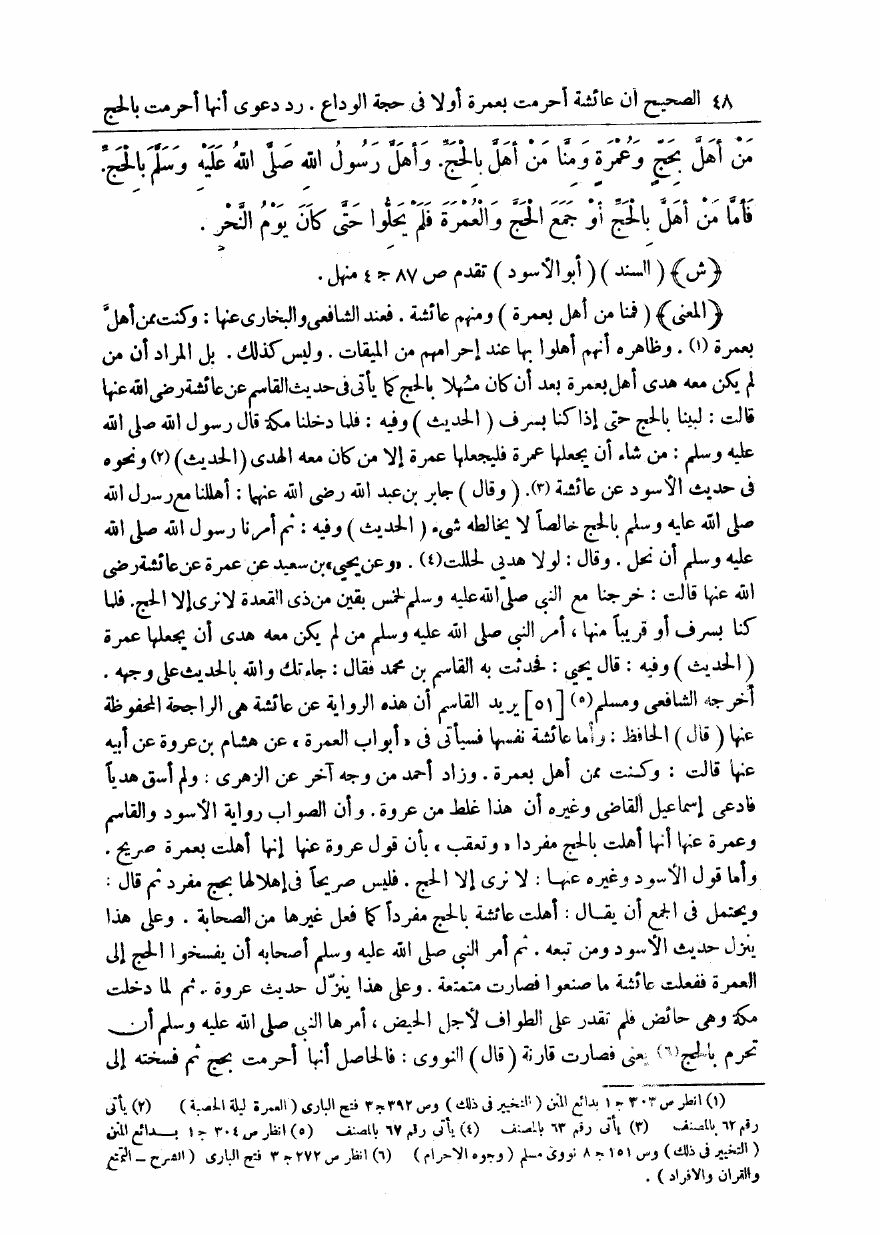 ٤٨ الصحيح أن عائشة أحرمت بعمرة أولا فى حجة الوداع . رد دعوى أنها أحرمت بالحج
مَنْ أَهَلَّ بِحَجٍّ وَعُمْرَةٍ وَمِنَّا مَنْ أَهَلَّ بِالْحَجِّ. وَأَهَلَّ رَسُولُ اللهِ صَلَّى اللهُ عَلَيْهِ وَسَلَّمَ بِالْحَجِّ.
فَأَمَّا مَنْ أَهَلَّ بِالْحَجِّ أَوْ جَمَعَ الْحَجَّ وَالْعُمْرَةَ فَلَمْ يَحِلُّوا حَتَّى كَانَ يَوْمُ النَّحْرِ .
﴿ش﴾ ( السند ) ( أبو الأسود ) تقدم ص ٨٧ ج ٤ منهل .
﴿المعنى﴾ ( فمنا من أهل بعمرة ) ومنهم عائشة . فعند الشافعى والبخارى عنها : وكنت ممن أهلَّ
بعمرة (١) . وظاهره أنهم أهلوا بها عند إحرامهم من الميقات . وليس كذلك . بل المراد أن من
لم يكن معه هدى أهل بعمرة بعد أن كان مُهلا بالحج كما يأتى فى حديث القاسم عن عائشة رضى الله عنها
قالت : لبينا بالحج حتى إذا كنا بسرف ( الحديث ) وفيه : فلما دخلنا مكة قال رسول الله صلى الله
عليه وسلم : من شاء أن يجعلها عمرة فليجعلها عمرة إلا من كان معه الهدى (الحديث) (٢) ونحوه
فى حديث الأسود عن عائشة (٣). ( وقال ) جابر بن عبد الله رضى الله عنهما : أهللنا مع رسول الله
صلى الله عليه وسلم بالحج خالصاً لا يخالطه شىء ( الحديث ) وفيه : ثم أمرنا رسول الله صلى الله
عليه وسلم أن نحل . وقال : لولا هديى لحللت (٤) . «وعن يحيى» بن سعيد عن عمرة عن عائشة رضى
الله عنها قالت : خرجنا مع النبى صلى الله عليه وسلم لخمس بقين من ذى القعدة لا نرى إلا الحج. فلما
كنا بسرف أو قريباً منها ، أمر النبى صلى الله عليه وسلم من لم يكن معه هدى أن يجعلها عمرة
( الحديث ) وفيه : قال يحيى : فحدثت به القاسم بن محمد فقال : جاءتك والله بالحديث على وجهه .
أخرجه الشافعى ومسلم (٥) [٥١] يريد القاسم أن هذه الرواية عن عائشة هى الراجحة المحفوظة
عنها ( قال ) الحافظ : وأما عائشة نفسها فسيأتى فى « أبواب العمرة » عن هشام بن عروة عن أبيه
عنها قالت : وكنت ممن أهل بعمرة . وزاد أحمد من وجه آخر عن الزهرى : ولم أسق هدياً
فادعى إسماعيل القاضى وغيره أن هذا غلط من عروة . وأن الصواب رواية الأسود والقاسم
وعمرة عنها أنها أهلت بالحج مفردا « وتعقب » بأن قول عروة عنها إنها أهلت بعمرة صريح .
وأما قول الأسود وغيره عنها : لا نرى إلا الحج . فليس صريحاً فى إهلالها بحج مفرد ثم قال :
ويحتمل فى الجمع أن يقال : أهلت عائشة بالحج مفرداً كما فعل غيرها من الصحابة . وعلى هذا
ينزل حديث الأسود ومن تبعه . ثم أمر النبى صلى الله عليه وسلم أصحابه أن يفسخوا الحج إلى
العمرة ففعلت عائشة ما صنعوا فصارت متمتعة . وعلى هذا ينزّل حديث عروة . ثم لما دخلت
مكة وهى حائض فلم تقدر على الطواف لأجل الحيض ، أمرها النبى صلى الله عليه وسلم أن
تحرم بالحج (٦) يعنى فصارت قارنة ( قال ) النووى : فالحاصل أنها أحرمت بحج ثم فسخته إلى
(١) انظر ص ٣٠٣ ج ١ بدائع المنن ( التخيير فى ذلك ) وص ٣٩٢ ج ٣ فتح البارى ( العمرة ليلة الحصبة ) (٢) يأتى
رقم ٦٢ بالمصنف (٣) يأتى رقم ٦٣ بالمصنف (٤) يأتى رقم ٦٧ بالمصنف (٥) انظر ص ٣٠٤ ج ١ بدائع المنن
( التخيير فى ذلك ) وص ١٥١ ج ٨ نووى مسلم ( وجوه الاحرام ) (٦) انظر ص ٢٧٢ ج ٣ فتح البارى ( الشرح – التمتع
والقران والافراد ) .